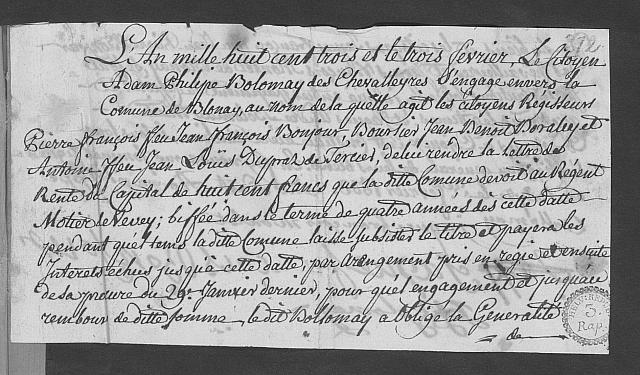 292
L'An mille huit cent trois et le trois fevrier, Le Citoyen
Adam Philipe Bolomay des Chevalleyres S'engage envers la
Comune de Blonay, au nom de la quelle agit les Citoyens Régisseurs
Pierre françois ffeu Jean françois Bonjour, Boursier Jean Benoit Boraley et
Antoine ffeu Jean Louïs Dupraz de Tercier, de lui rendre la Lettre de
Rente du Capital de huit cent francs que la ditte Comune devoit au Régent
Motier de Vevey; biffée dans le terme de quatre années dès cette datte
pendant quel tems la ditte Comune laisse subsister le titre et payera les
Interets échus jusqu'a cette datte, par arangement pris en regie et ensuite
de sa procure du 29e. Janvier dernier, pour quel engagement et jusqu'au
rembour de ditte somme, le dit Bollomay a Obligé la Generalité
de
S.
Rap.